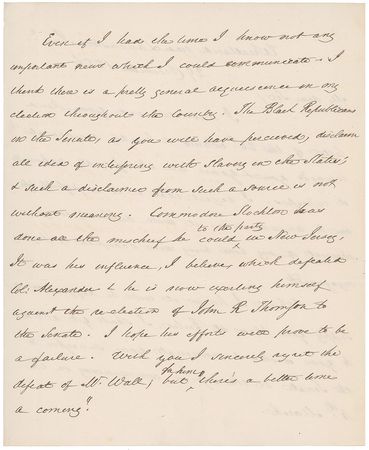 Even if I had the time I know not any
important news which I could communicate. I
think there is a pretty general acquiescence in my
election throughout the Country. The Black Republicans
in the Senate, as you will have perceived, disclaim
all idea of interfering with Slavery in the States;
& such a disclaimer from such a source is not
without meaning. Commodore Stockton has
done all the mischief he could to the party in New Jersey.
It was his influence, I believe, which defeated
Col: Alexander & he is now exerting himself
against the re-election of John R Thomson to
the Senate. I hope his efforts will prove to be
a failure. With you I sincerely regret the
defeat of Mr. Wall; but for him "there's a better time
a coming".